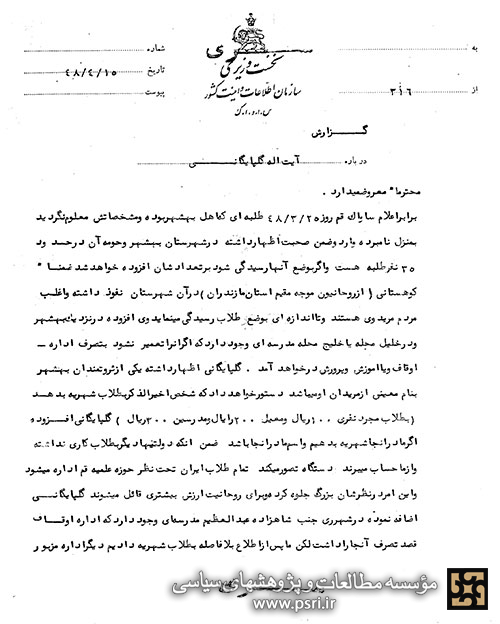 نخست وزیری
سازمان اطلاعات و امنیت کشور
س.ا.و.ا.ک
به
از ۳۱۶
شماره
تاریخ ۴۸/۴/۱۵
پیوست
گزارش
درباره آیت اله گلپایگانی
محترما" معروضمیدارد .
برابر اعلام ساواک قم روز ۴۸/۳/۲۵ طلبه ای که اهل بهشهر بوده و مشخصاتش معلوم نگردید
بمنزل نامبرده وارد و ضمن صحبت اظهار داشته در شهرستان ببهشهر وحومه آن در حدود
۳۵ نفر طلبه هست واگر بوضع آنها رسیدگی شود بر تعدادشان افزوده خواهد شد ضمنا"
کوهستانی ( از روحانیون موجه مقیم استان مازندران ) در آن شهرستان نفوذ داشته واغلب
مردم مرید وی هستند و تا اندازه ای بوضع طلاب رسیدگی مینماید وی افزوده در نزدیک بهشهر
ودر خلیل محله یا خلیج محله مدرسه ای وجود دارد که اگر آنرا تعمیر نشود بتصرف اداره -
اوقاف ویا آموزش وپرورش در خواهد آمد . گلپایگانی اظهار داشته یکی از ثروتمندان بهشهر
بنام معینی از مریدان او میباشد دستور خواهد داد که شخص اخیر الذکر بطلاب شهریه بدهد
( بطلاب مجرد نفری ۱۰۰ ریال ومعیل ۲۰۰ ریال ومدرسین ۳۰۰ ریال ) گلپایگانی افزوده
اگر ما در آنجا شهریه بدهیم واسم ما در آنجا باشد ضمن آنکه دولتیها دیگر بطلاب کاری نداشته
و از ما حساب میبرند دستگاه تصور میکند تمام طلاب ایران تحت نظر حوزه علمیه قم اداره میشود
و این امر در نظرشان بزرگ جلوه کرده وبرای روحانیت ارزش بیشتری قائل میشوند گلپایگانی
اضافه نموده در شهرری جنب شاهزاده عبدالعظیم مدرسه ای وجود دارد که اداره اوقاف
قصد تصرف آنجا را داشت لکن ما پس از اطلاع بلافاصله بطلاب شهریه دادیم دیگر اداره مزبور
مؤسسه مطالعات و پژوهشهای سیاسی
www.psri.ir